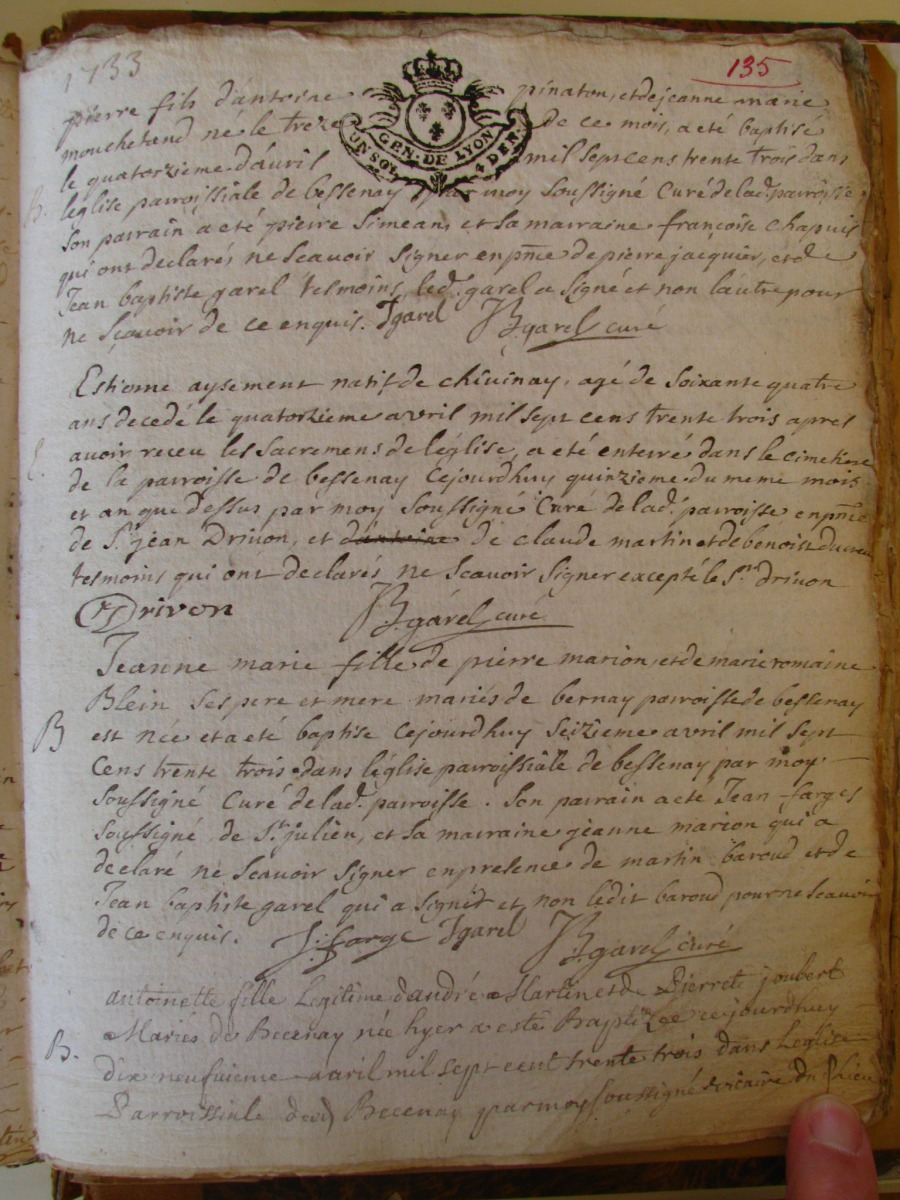 1733
135
GEN. DE LYON
UN SOL 4 DEN.
pierre fils d'antoine pinaton, et de jeanne marie
mouchetand né le treze de ce mois, a eté baptisé
le quatorzieme d'auril mil sept cens trente trois dans
B. leglise parroissiale de bessenay par moy soussigné Curé de lad. parroisse
son parrain a eté pierre simean, et sa marraine françoise chapuis
qui ont declarés ne scauoir signer en pnce de pierre jacquier, et de
Jean baptiste garel tesmoins, led. garel a signé et non lautre pour
ne sçauoir de ce enquis. Jgarel B. garel curé
Estienne aysement natif de cheuinay, agé de soixante quatre
ans decedé le quatorzieme avril mil sept cens trente trois apres
avoir receu les sacremens de l'eglise, a eté enterré dans le cimetiere
de la parroisse de bessenay cejourdhuy quinzieme du meme mois
et an que dessus par moy soussigné Curé de lad. parroisse en pnce
de Sr. jean Drivon, et d'antoine de claude martin et de benoist
tesmoins qui ont declarés ne scauoir signer excepté le Sr. drivon
Drivon B. garel curé
Jeanne marie fille de pierre marion, et de marie romaine
Blein ses pere et mere mariés de bernay parroisse de bessenay
B est née et a eté baptise cejourdhuy seizieme avril mil sept
cens trente trois dans l'eglise parroissiale de bessenay par moy
soussigné Curé de lad. parroisse. Son parrain a eté Jean farges
soussigné de St. julien, et sa marraine jeanne marion qui a
declaré ne scauoir signer en presence de martin baroud et de
Jean baptiste garel qui a signé et non ledit baroud pour ne scauoir
de ce enquis. J. farge Jgarel B. garel curé
antoinette fille Legitime d'andré Martin et de Pierrete joubert
Mariés de Becenay née hyer a estée Baptizée ce jourdhuy
B. dix neufuieme auril mil sept cent trente trois dans Leglise
Parroissiale de Becenay par moy soussigné vicaire du Lieu